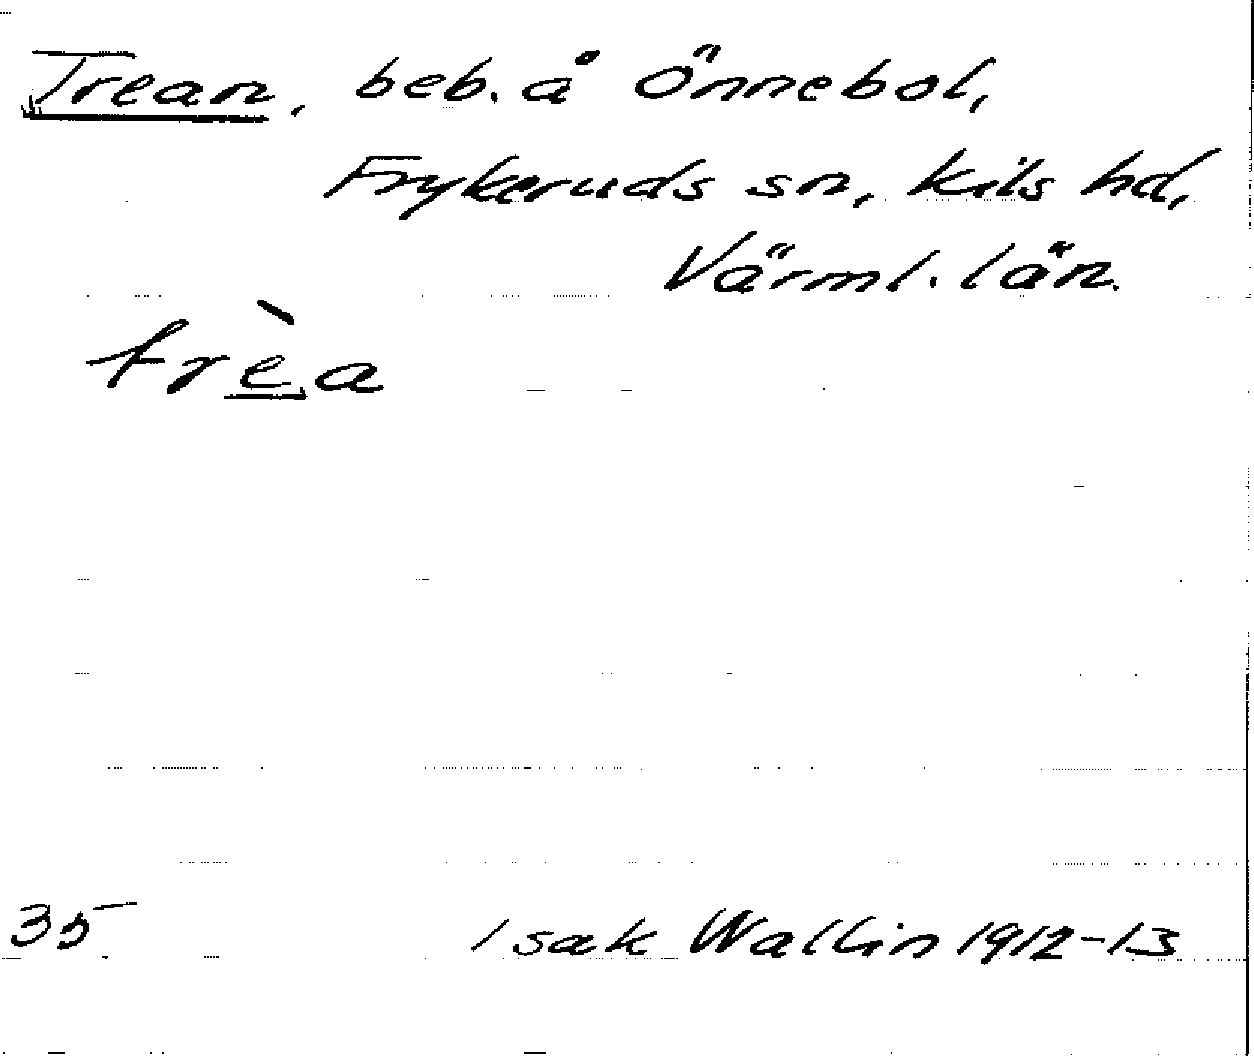 Trean, beb. å Önnebol,
Frykeruds sn, Kils hd,
Värml. län.
trèa
35 Isak Wallin 1912-13